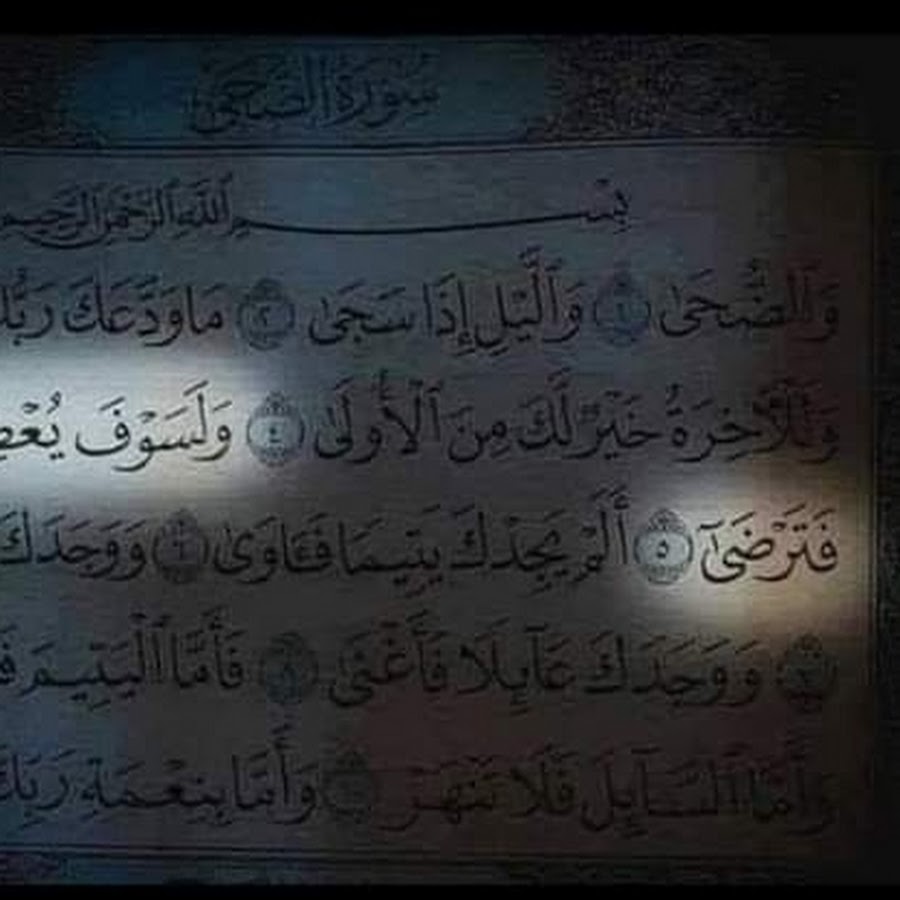 سُورَةُ الضُّحَىٰ
بِسْمِ ٱللَّهِ ٱلرَّحْمَٰنِ ٱلرَّحِيمِ
وَٱلضُّحَىٰ ١ وَٱلَّيْلِ إِذَا سَجَىٰ ٢ مَا وَدَّعَكَ رَبُّكَ
وَلَلْءَاخِرَةُ خَيْرٌ لَّكَ مِنَ ٱلْأُولَىٰ ٤ وَلَسَوْفَ
فَتَرْضَىٰٓ ٥ أَلَمْ يَجِدْكَ يَتِيمًا فَـَٔاوَىٰ ٦ وَوَجَدَكَ
٧ وَوَجَدَكَ عَآئِلًا فَأَغْنَىٰ ٨ فَأَمَّا ٱلْيَتِيمَ
وَأَمَّا ٱلسَّآئِلَ فَلَا تَنْهَرْ ١٠ وَأَمَّا بِنِعْمَةِ رَبِّكَ